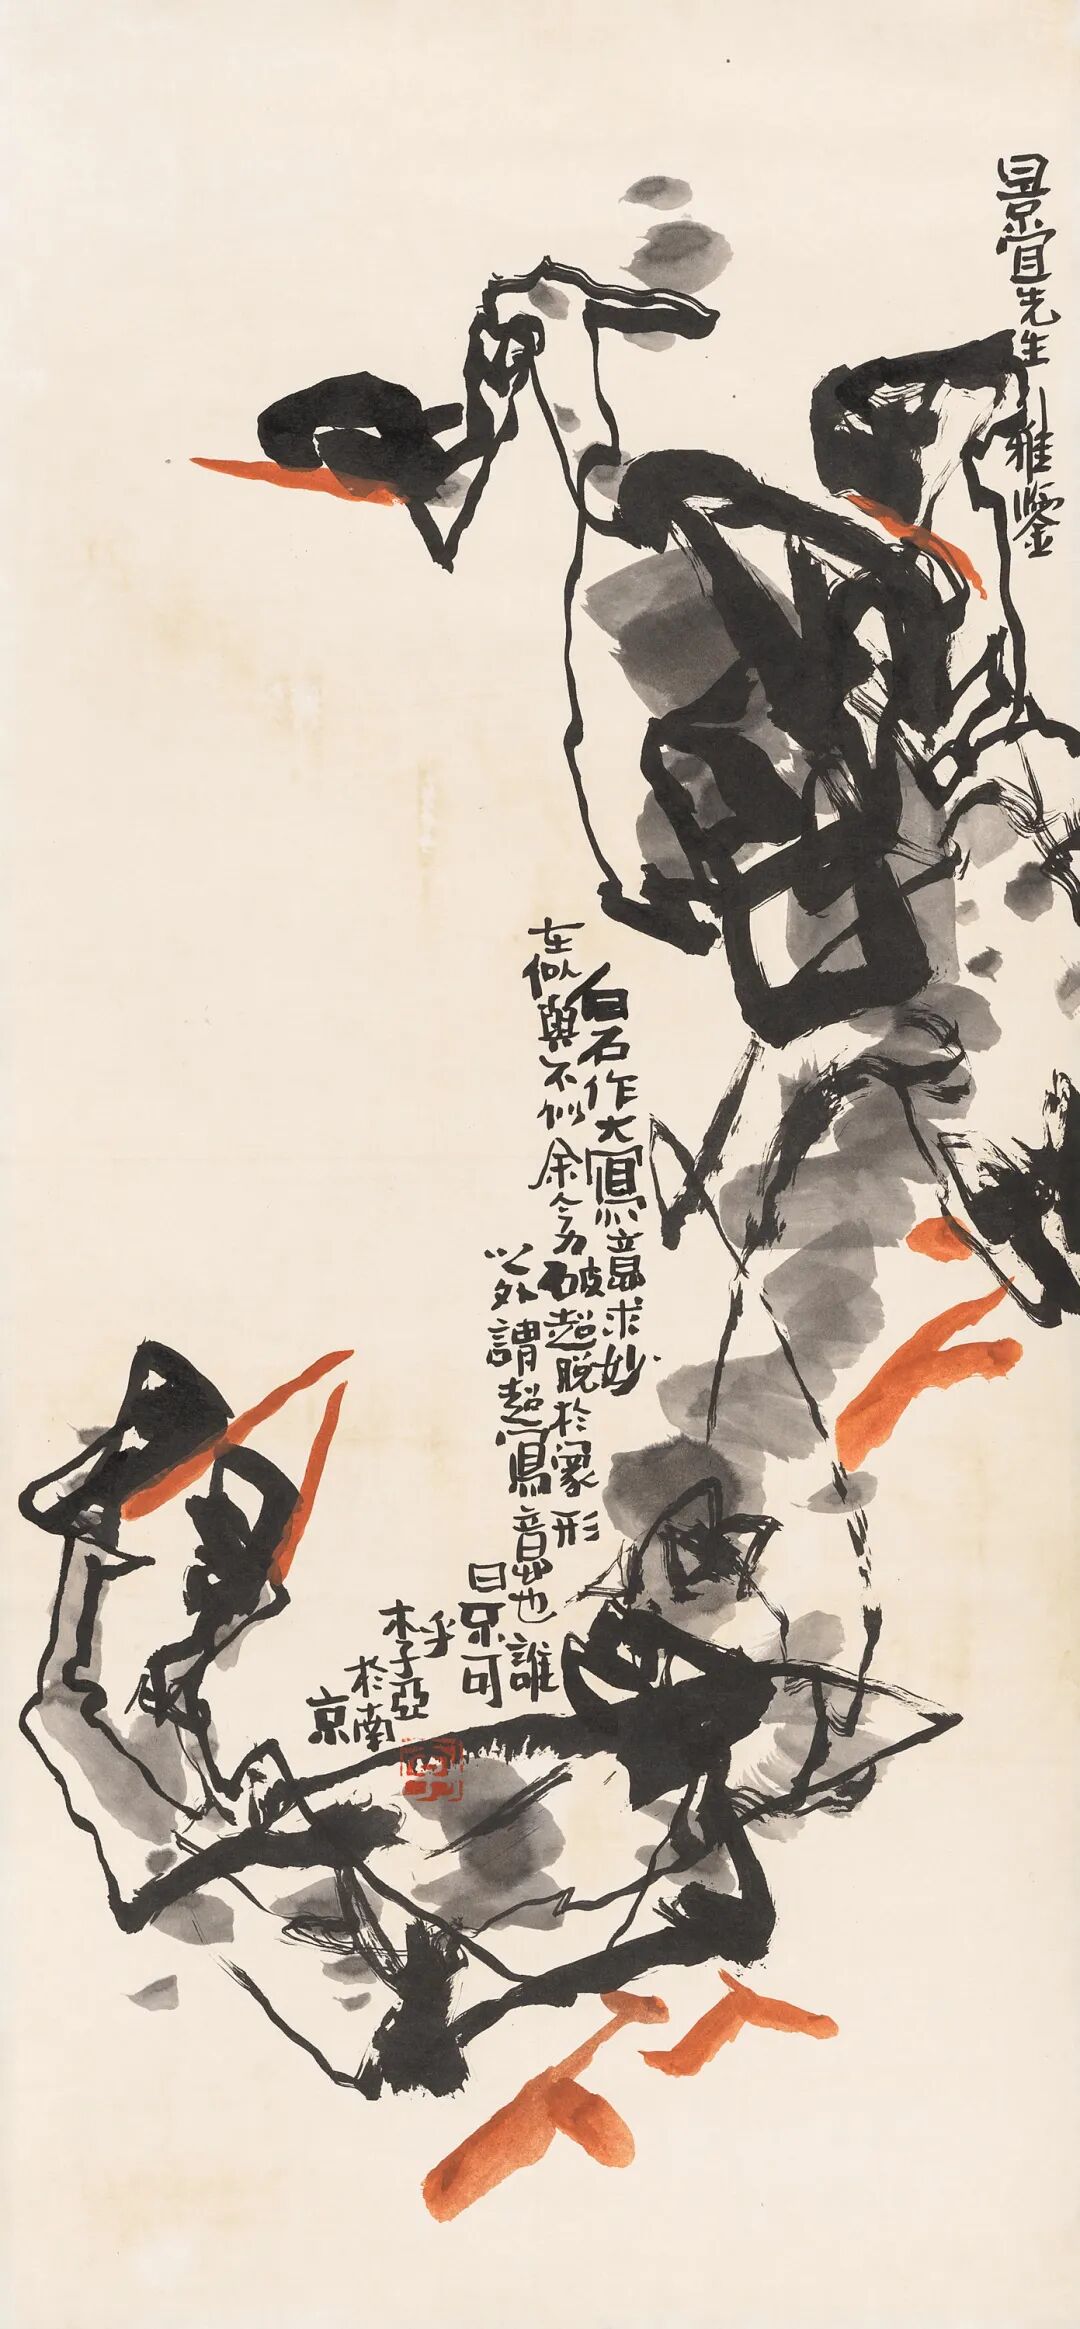 景宜先生 雅鑒
白石作大寫意求妙
在似與不似余今破超脫於象形
以外謂超寫意也誰
曰不可
乎
李亞
於南
京